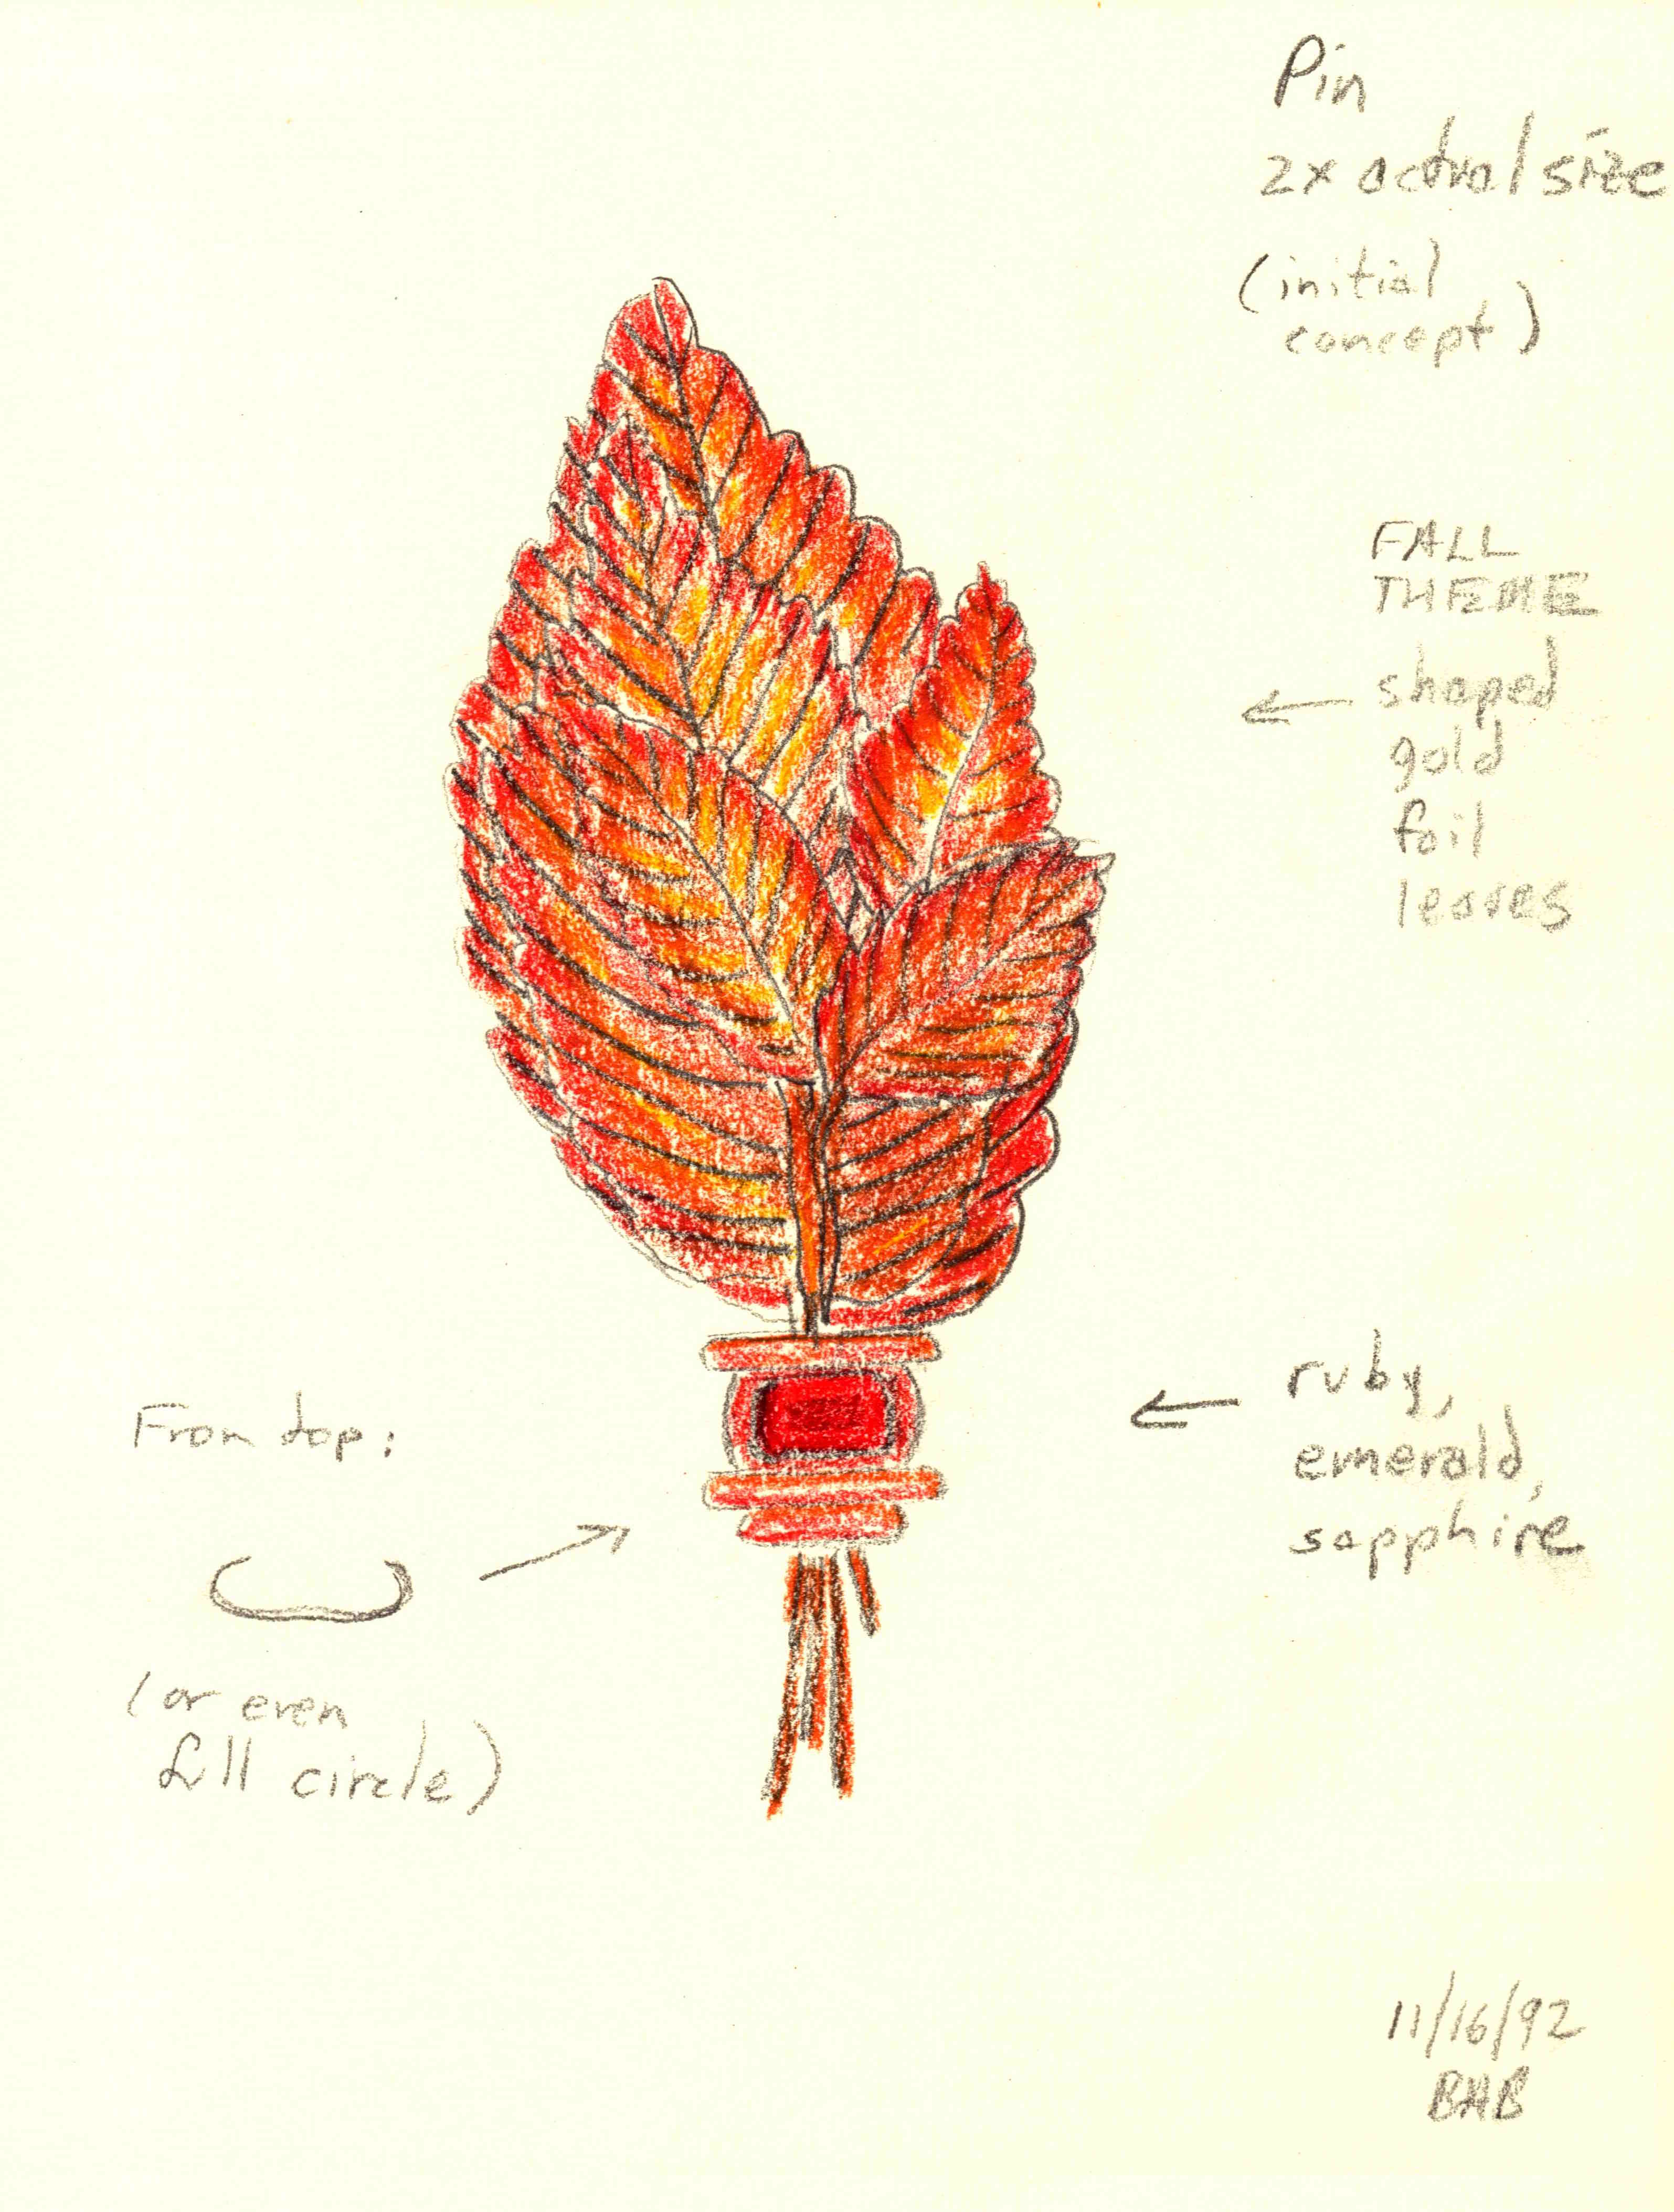 Pin
2x actual size
(initial
concept)
FALL
THEME
← shaped
gold
foil
leaves
← ruby,
emerald,
sapphire
From top:
(or even
full circle)
11/16/92
BAB